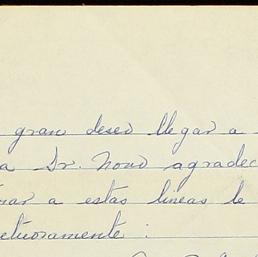 gran deseo llegar a
a Dr. Novo agradec
nar a estas lineas le
ctuosamente :